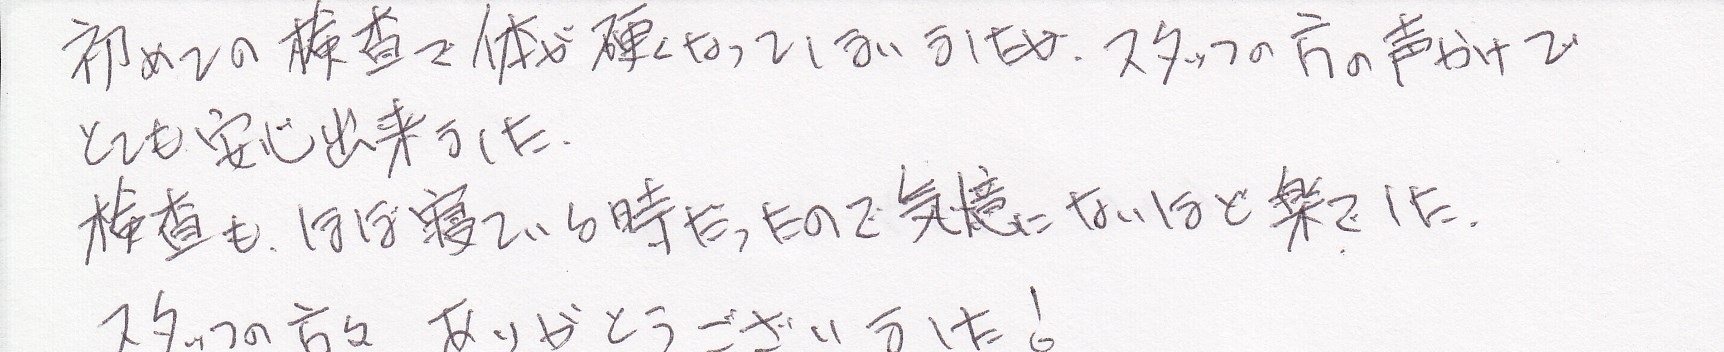 初めての検査で体が硬くなってしまいましたが、スタッフの方の声かけで
とても安心出来ました。
検査も、ほぼ寝ている時だったので気憶にないほど楽でした。
スタッフの方々 ありがとうございました!